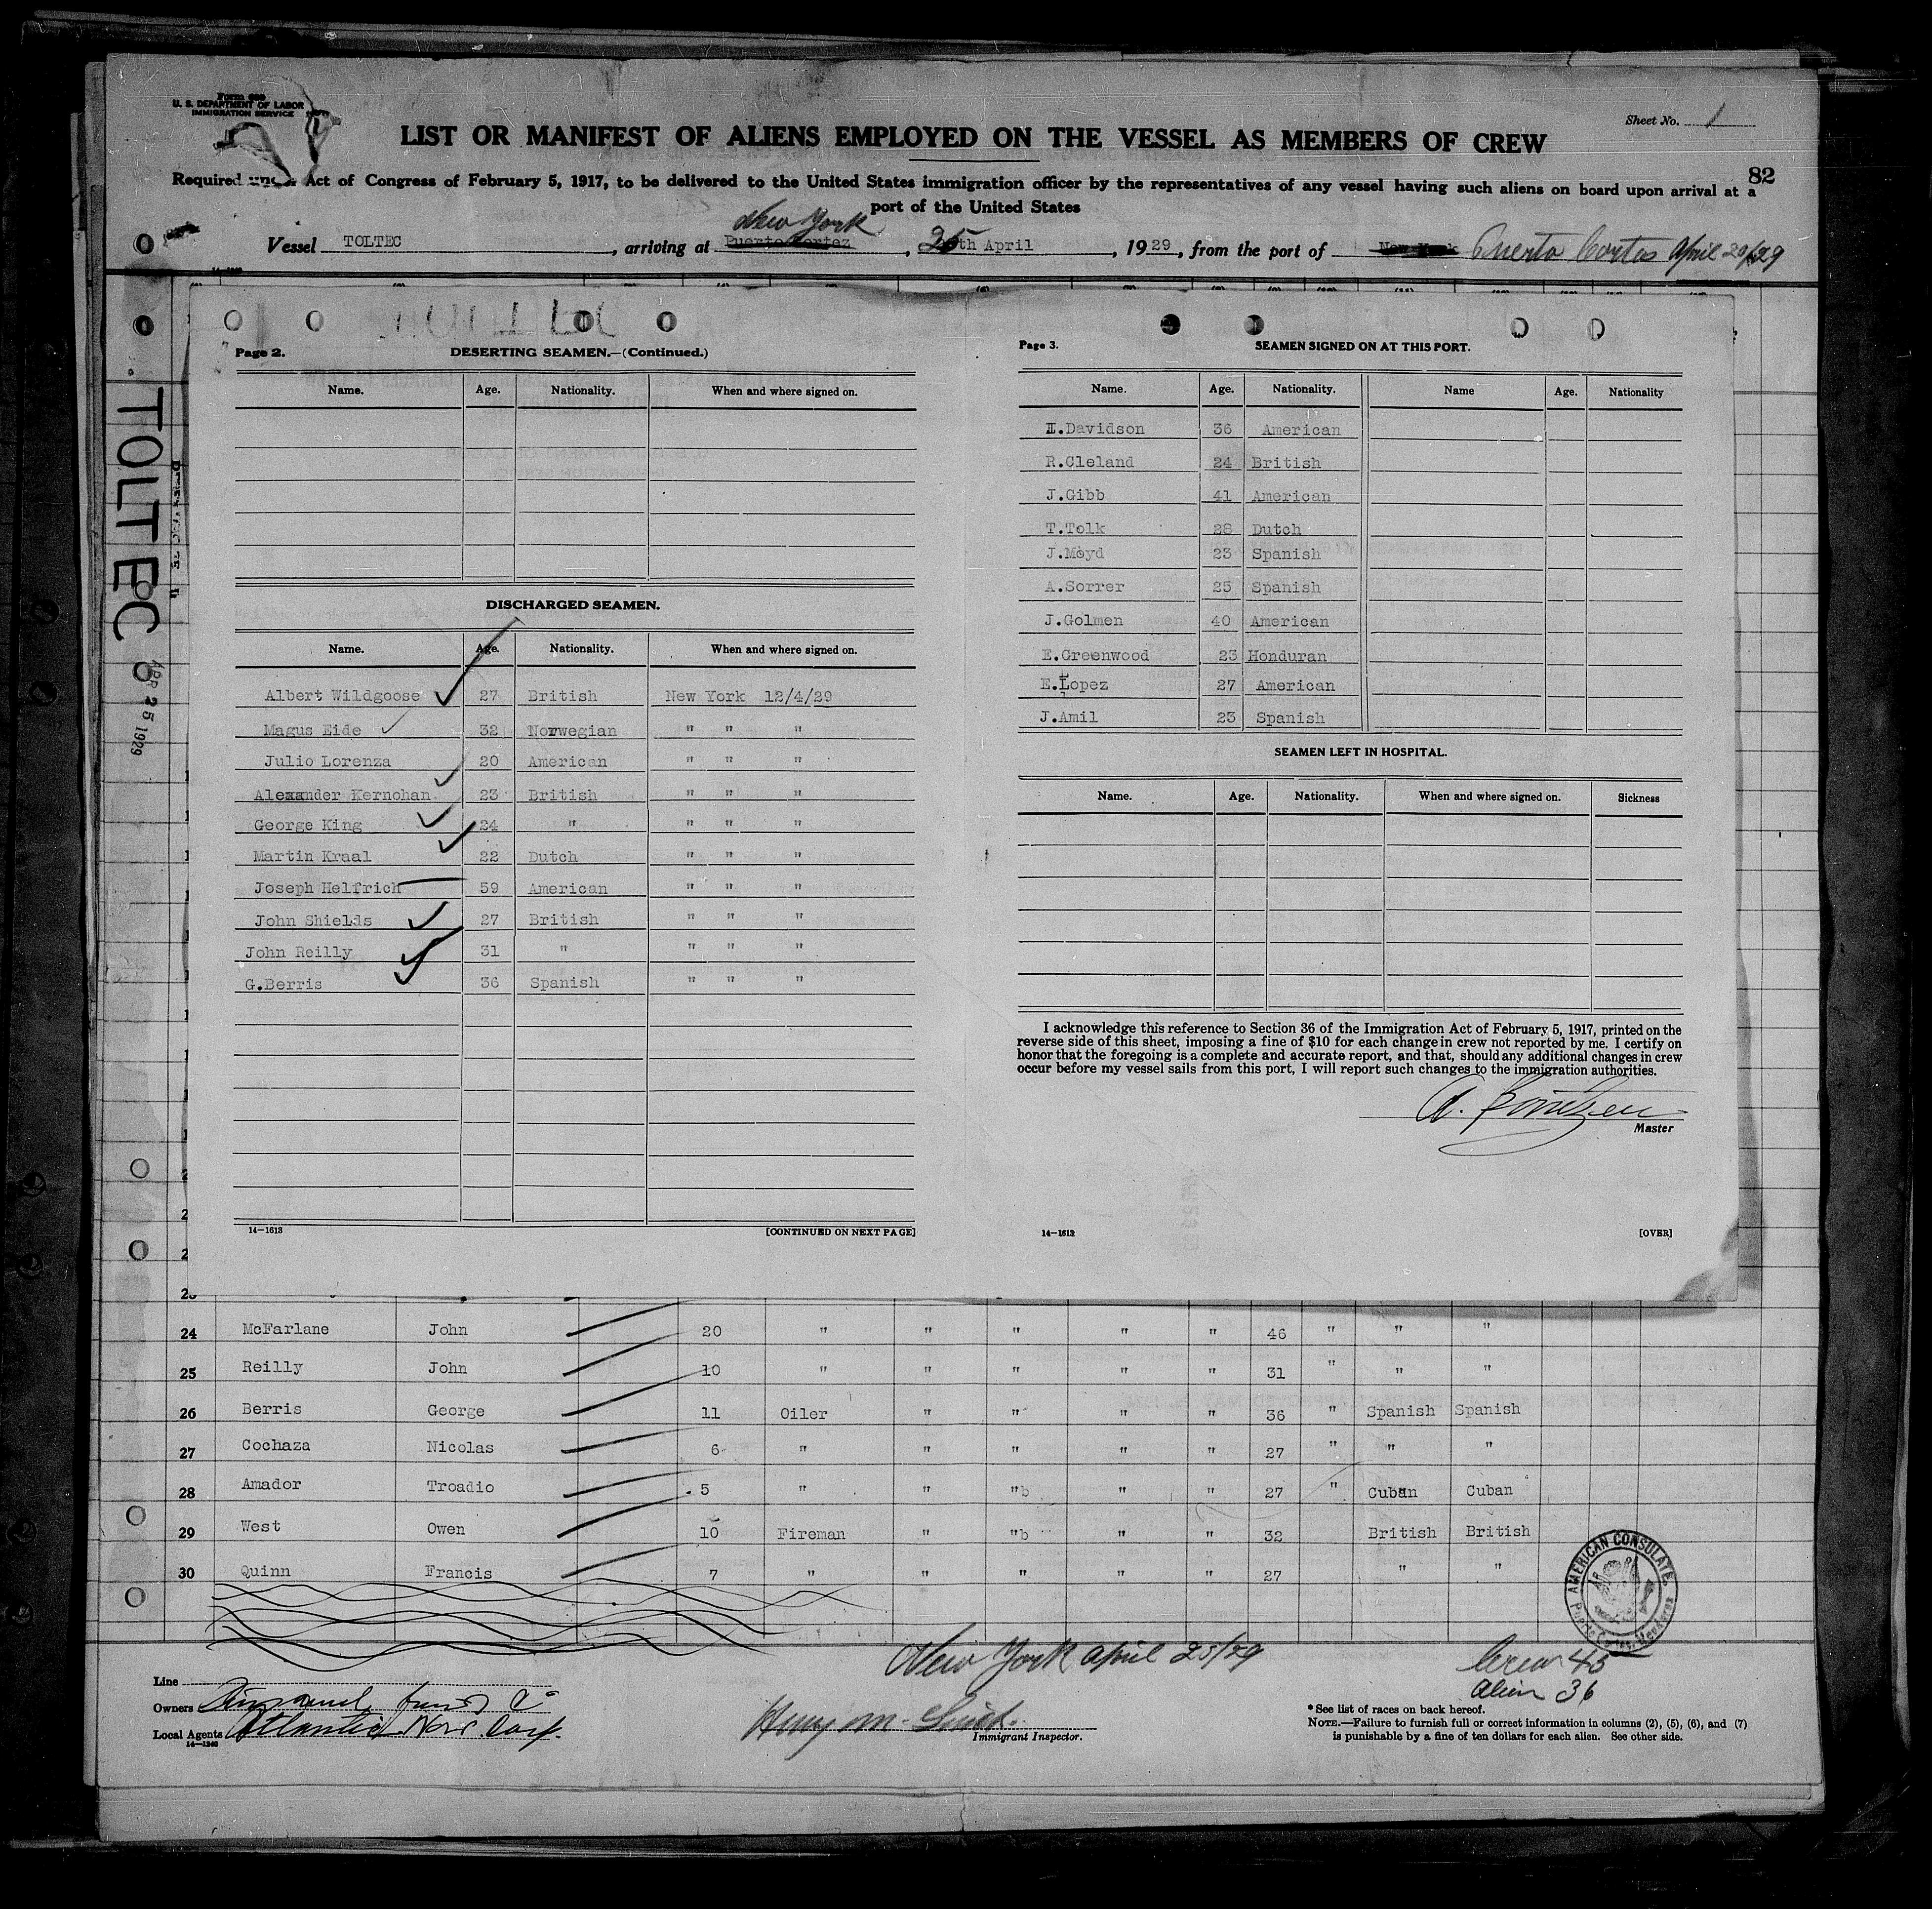 Form 689
U. S. DEPARTMENT OF LABOR
IMMIGRATION SERVICE
Sheet No. 1
LIST OR MANIFEST OF ALIENS EMPLOYED ON THE VESSEL AS MEMBERS OF CREW
82
Required under Act of Congress of February 5, 1917, to be delivered to the United States immigration officer by the representatives of any vessel having such aliens on board upon arrival at a
port of the United States
New York
Vessel TOLTEC, arriving at Puerto Cortez, 25th April, 1929, from the port of New York Puerto Cortes April 20/29
TOLTEC
TOLTEC
APR 25 1929
Page 2. DESERTING SEAMEN.—(Continued.)
Name. Age. Nationality. When and where signed on.
DISCHARGED SEAMEN.
Name. Age. Nationality. When and where signed on.
Albert Wildgoose 27 British New York 12/4/29
Magus Eide 32 Norwegian " " "
Julio Lorenza 20 American " " "
Alexander Kernohan 23 British " " "
George King 24 " " " "
Martin Kraal 22 Dutch " " "
Joseph Helfrich 59 American " " "
John Shields 27 British " " "
John Reilly 31 " " " "
G.Berris 36 Spanish " " "
14—1613 [CONTINUED ON NEXT PAGE]
Page 3. SEAMEN SIGNED ON AT THIS PORT.
Name. Age. Nationality. Name Age. Nationality
I.Davidson 36 American
R.Cleland 24 British
J.Gibb 41 American
T.Tolk 28 Dutch
J.Moyd 23 Spanish
A.Sorrer 25 Spanish
J.Golmen 40 American
E.Greenwood 23 Honduran
E.Lopez 27 American
J.Amil 23 Spanish
SEAMEN LEFT IN HOSPITAL.
Name. Age. Nationality. When and where signed on. Sickness
I acknowledge this reference to Section 36 of the Immigration Act of February 5, 1917, printed on the
reverse side of this sheet, imposing a fine of $10 for each change in crew not reported by me. I certify on
honor that the foregoing is a complete and accurate report, and that, should any additional changes in crew
occur before my vessel sails from this port, I will report such changes to the immigration authorities.
Master
14—1613 [OVER]
24 McFarlane John 20 " " " " " 46 " " "
25 Reilly John 10 " " " " " 31 " " "
26 Berris George 11 Oiler " " " " 36 " Spanish Spanish
27 Cochaza Nicolas 6 " " " " " 27 " " "
28 Amador Troadio 5 " " "b " " 27 " Cuban Cuban
29 West Owen 10 Fireman " "b " " 32 British British
30 Quinn Francis 7 " " " " " 27 " "
AMERICAN CONSULATE.
Puerto Cortes, Honduras
New York April 25/29
Crew 45
Alien 36
Line
Owners
Local Agents Atlantic Nav. Corp.
14—1240
Henry M.
Immigrant Inspector.
* See list of races on back hereof.
NOTE.—Failure to furnish full or correct information in columns (2), (5), (6), and (7)
is punishable by a fine of ten dollars for each alien. See other side.